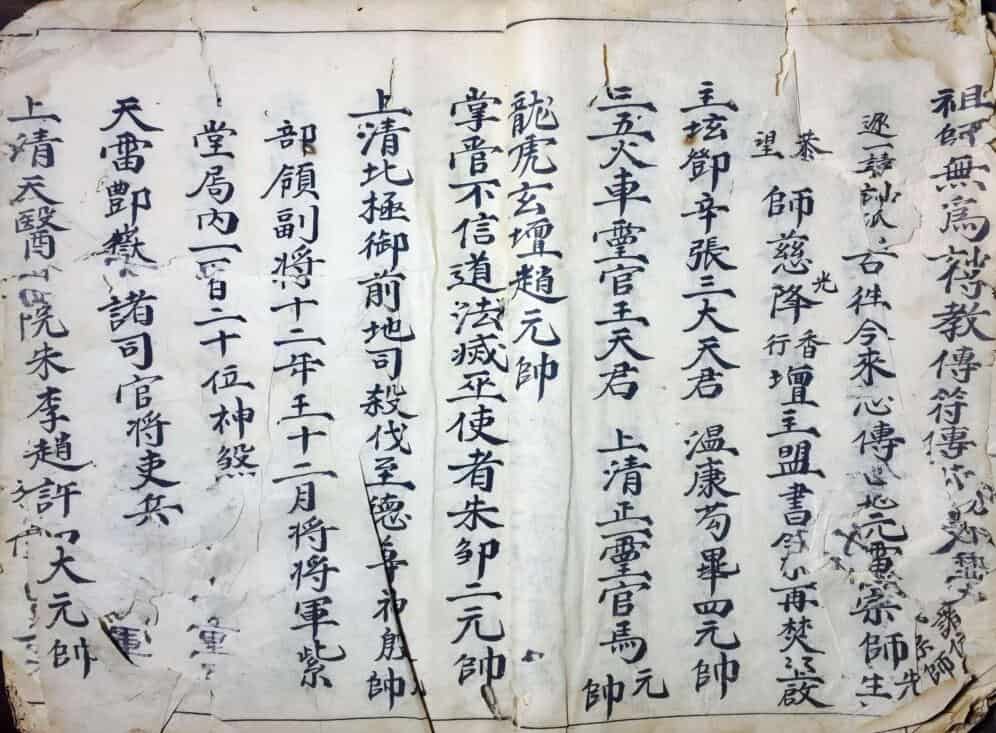 祖師無為符教傳符傳
逐一請訣派古往今來心傳口元宗師
恭望師慈光降香行壇主盟書符再焚啟
主玹鄧辛張三大天君 温康苟畢四元帥
三五火車靈官王天君 上清正靈官馬元帥
龍虎玄壇趙元帥
掌管不信道法滅巫使者朱邹二元帥
上清北極御前地司殺伐至德尊神殷帥
部領副將十二年王十二月將將軍紫
堂局內一百二十位神煞
天雷酆嶽諸司官將吏兵
上清天醫院朱李趙許四大元帥